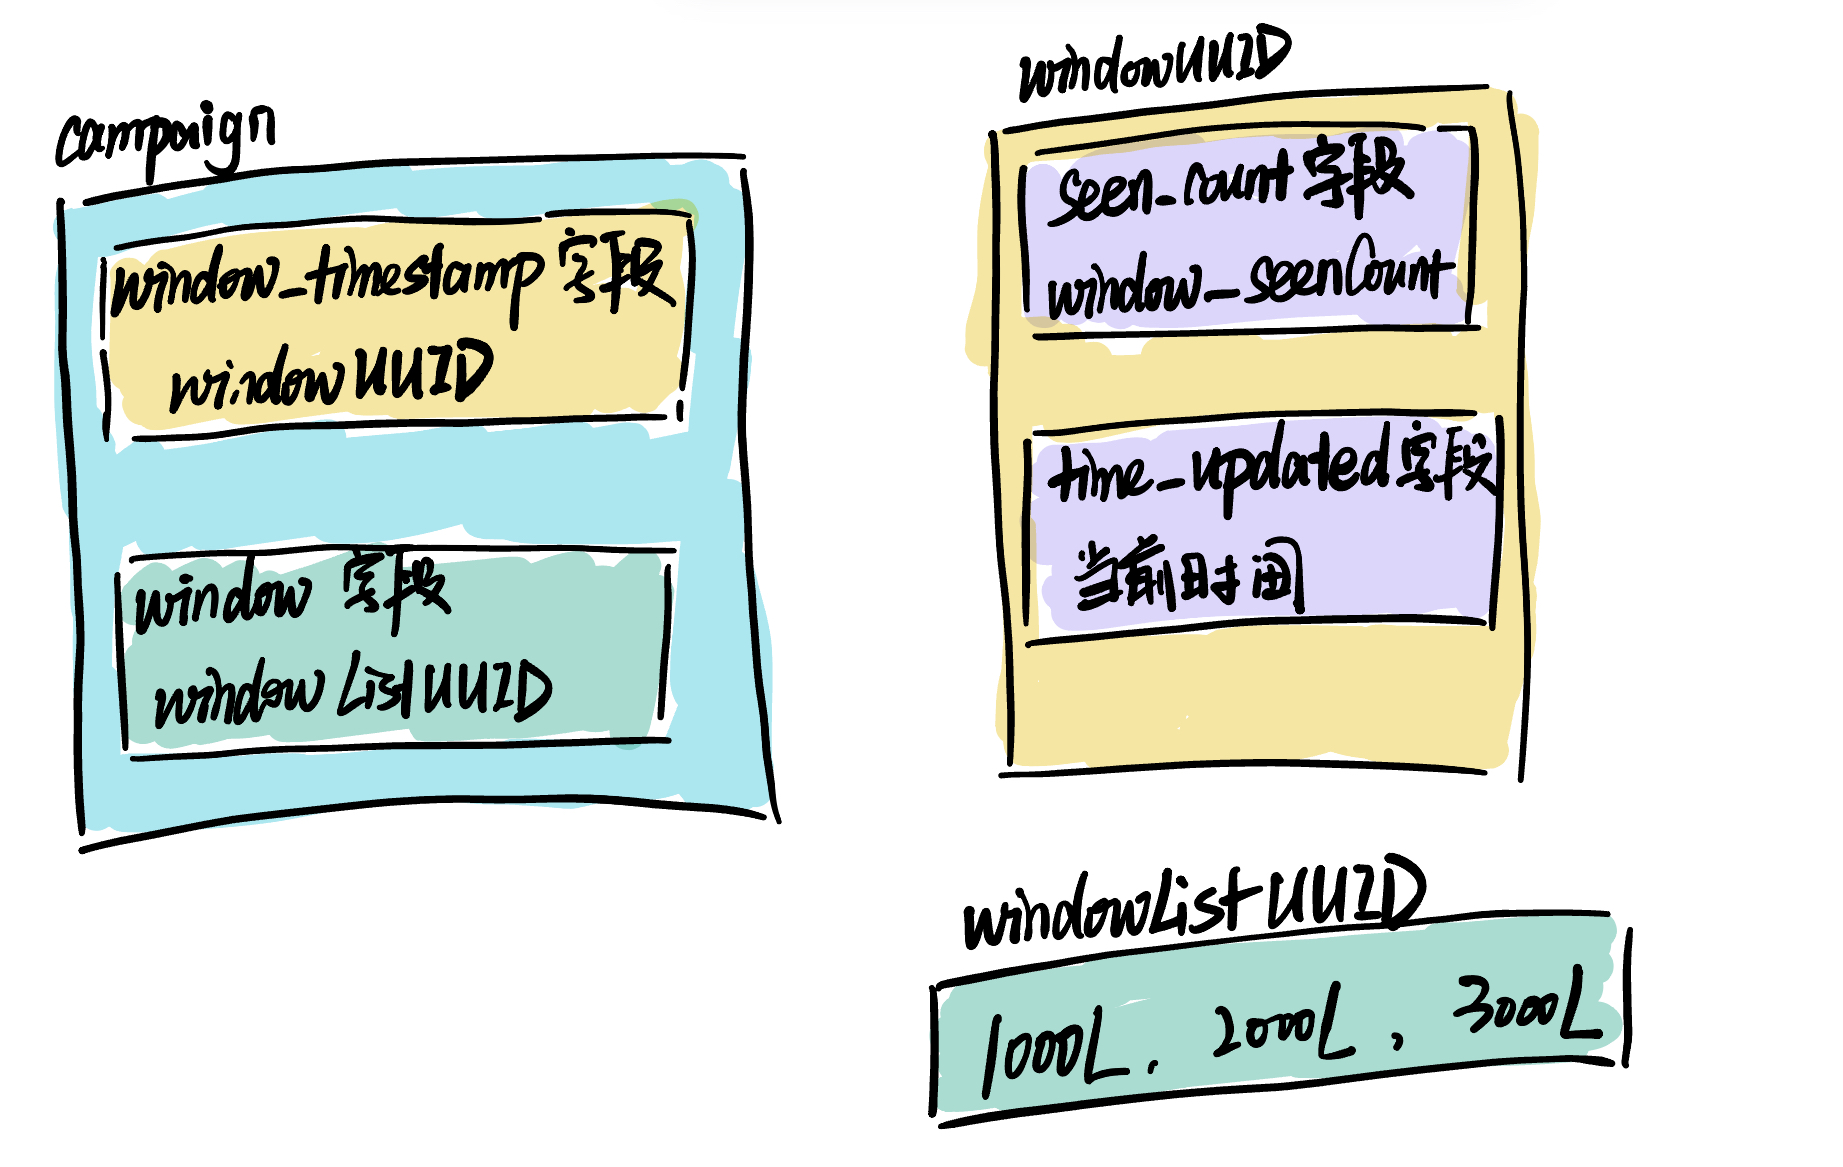 campaign
window_timestamp 字段
windowUUID
window 字段
windowListUUID
windowUUID
seen_count 字段
window_seenCount
time_updated 字段
当前时间
windowListUUID
1000L, 2000L, 3000L